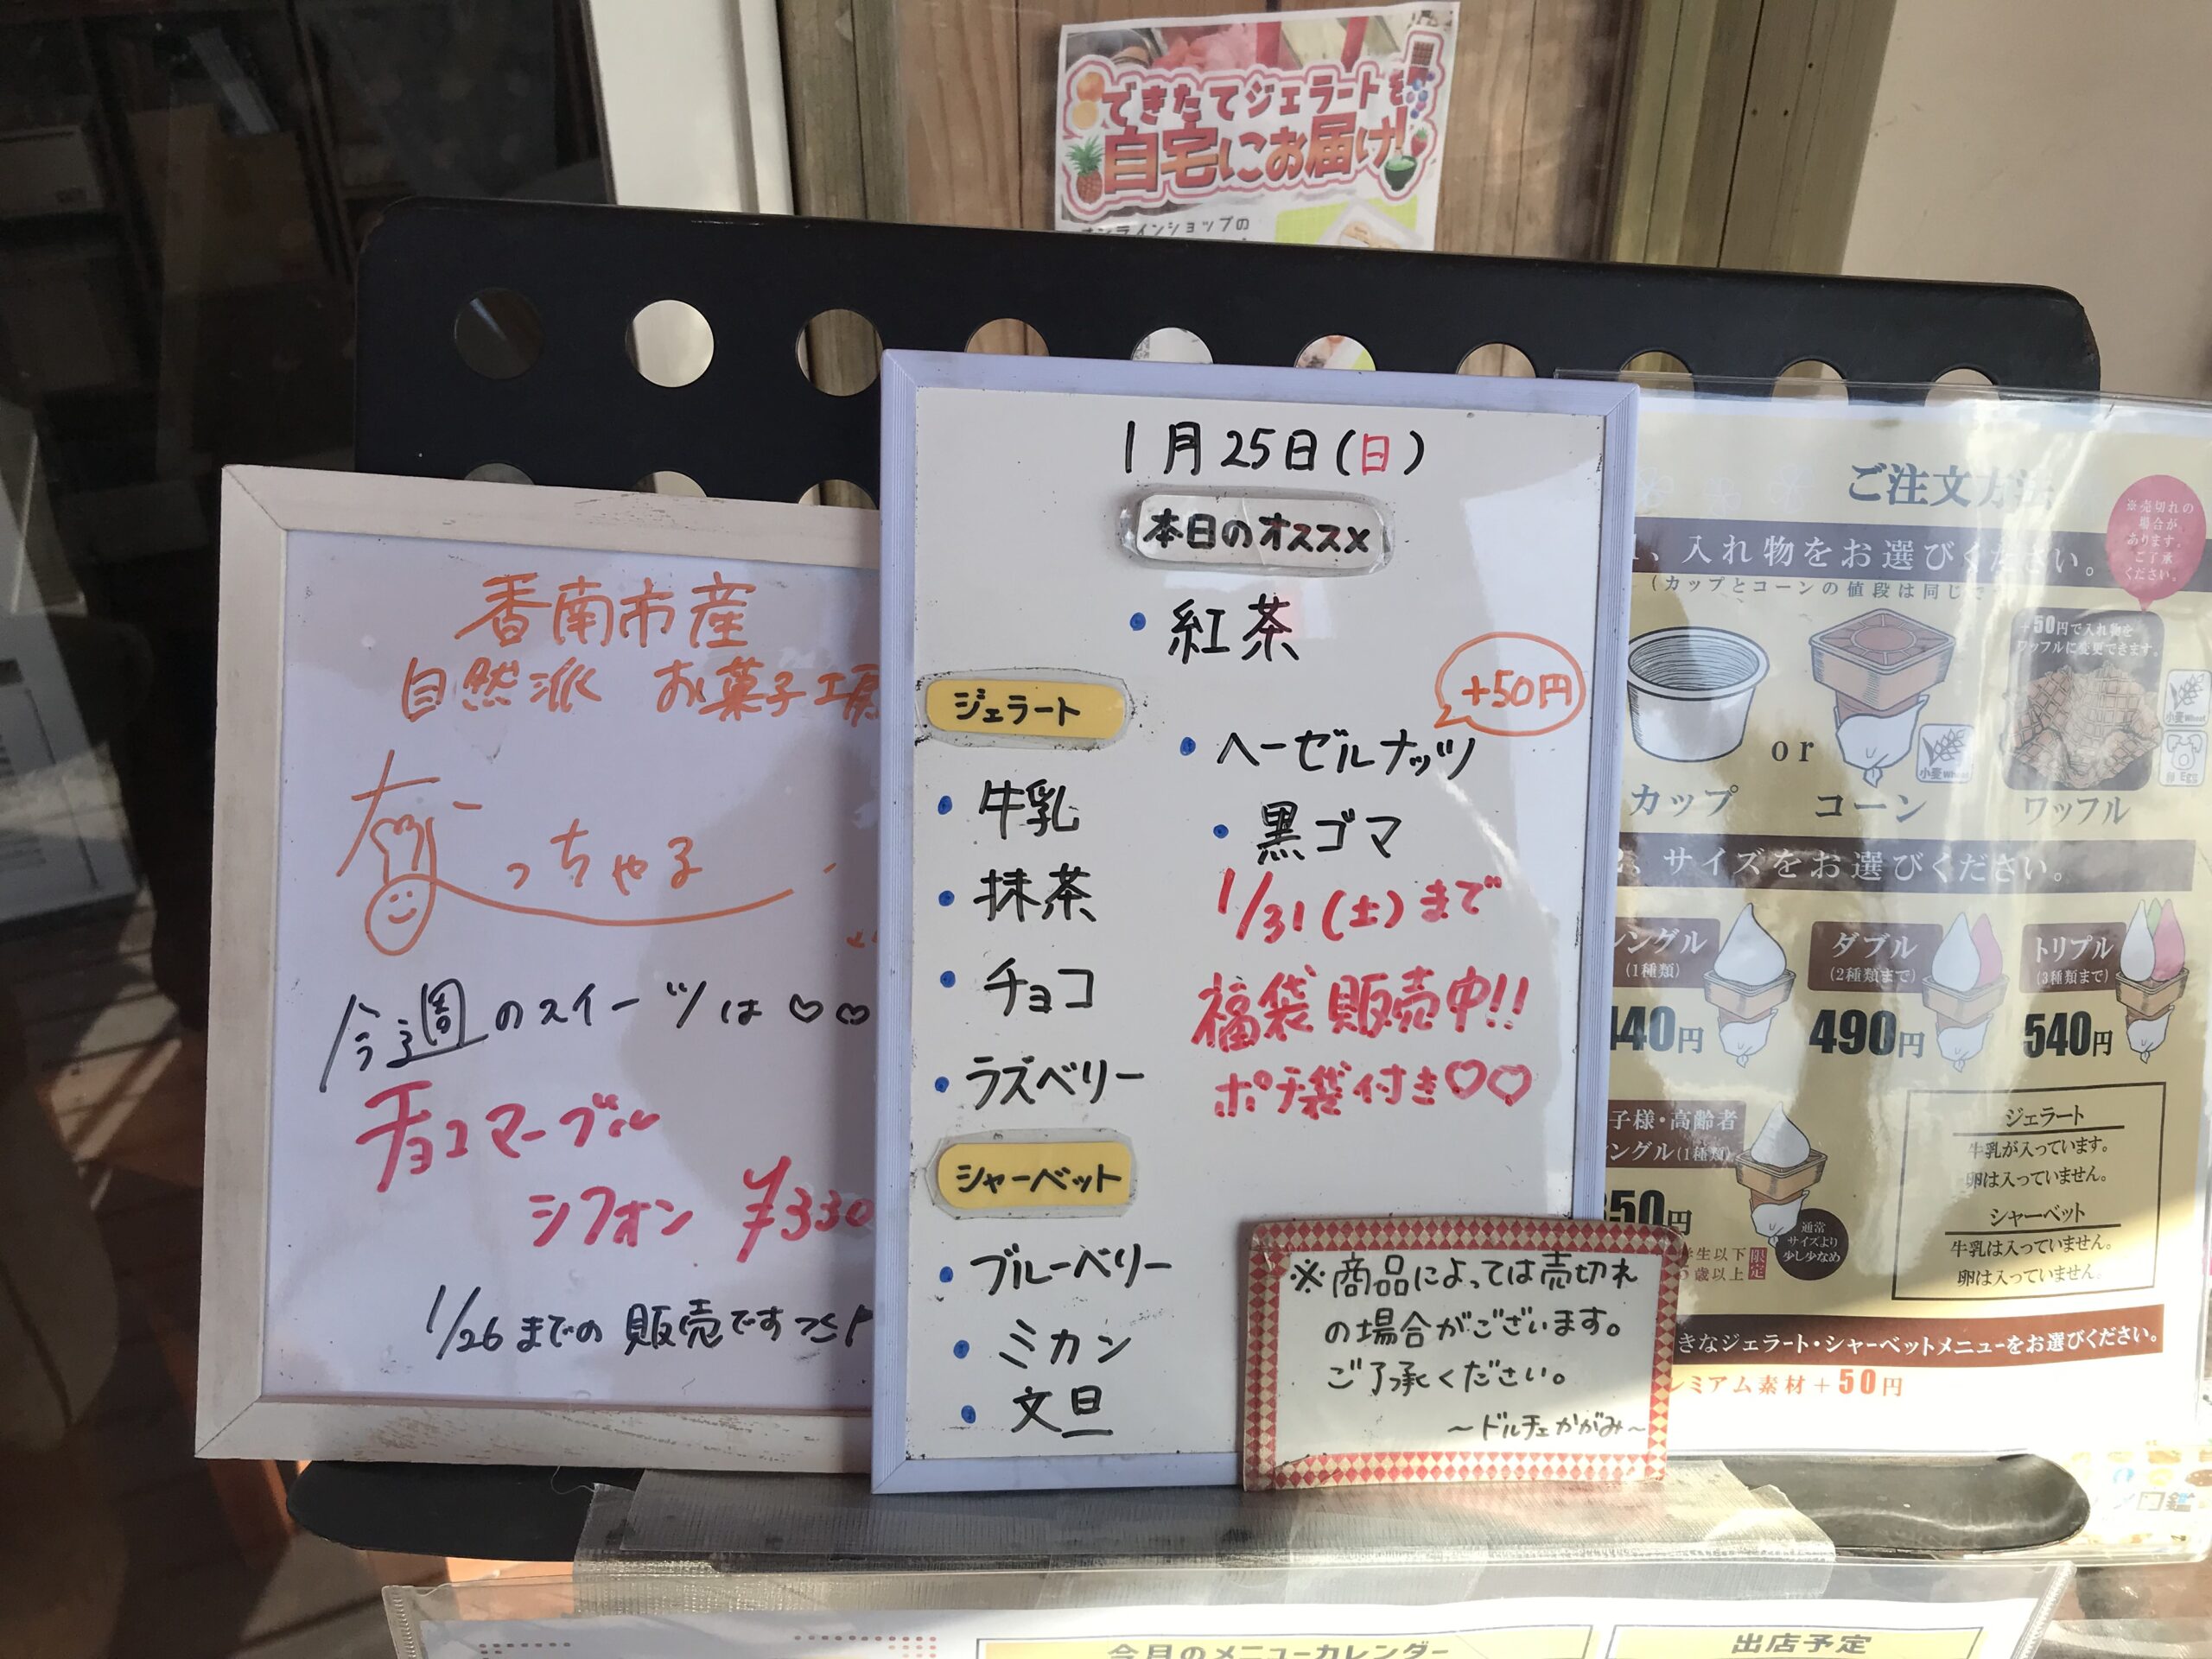 できたてジェラートを
自宅にお届け!
オンラインショップの
香南市産
自然派 お菓子工房
っちゃる
今週のスイーツは♡♡
チョコマーブル
シフォン ¥330
1/26までの 販売です
1月25日(日)
本日のオススメ
・紅茶
ジェラート
・牛乳
・抹茶
・チョコ
・ラズベリー
+50円
・ヘーゼルナッツ
・黒ゴマ
1/31(土)まで
福袋販売中!!
ポチ袋付き♡♡
シャーベット
・ブルーベリー
・ミカン
・文旦
※商品によっては売切れ
の場合がございます。
ご了承ください。
~ドルチェかがみ~
ご注文方法
※売切れの
場合が
あります。
ご了承
ください。
1、入れ物をお選びください。
(カップとコーンの値段は同じで
+50円で入れ物を
ワッフルに変更できます。
or
小麦 Wheat
小麦 Wheat
卵 Eggs
カップ
コーン
ワッフル
、サイズをお選びください。
ングル
(1種類)
40円
ダブル
(2種類まで)
490円
トリプル
(3種類まで)
540円
子様・高齢者
ングル(1種類)
350円
学生以下
歳以上
限定
通常
サイズより
少し少なめ
ジェラート
牛乳が入っています。
卵は入っていません。
シャーベット
牛乳は入っていません。
卵は入っていません。
きなジェラート・シャーベットメニューをお選びください。
レミアム素材+50円
今月のメニューカレンダー
出店予定